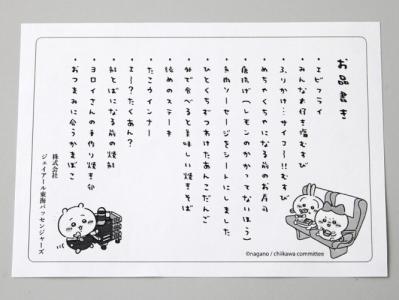 お品書き
・エビフライ
・みんな大好き塩むすび
・ふりかけ…サイコー!!むすび
・めちゃくちゃになる前のお寿司
・唐揚げ(レモンのかかってないほう)
・魚肉ソーセージをシートにしました
・ひとくちむつあけたあんこだんご
・外で食べると美味しい焼きそば
・絞めのステーキ
・たこウインナー
・え〜?たくあん?
・ヨロイさんの手作り焼き印
・おつまみに合うかまぼこ
株式会社
ジェイアール東海パッセンジャーズ
©nagano / chiikawa committee